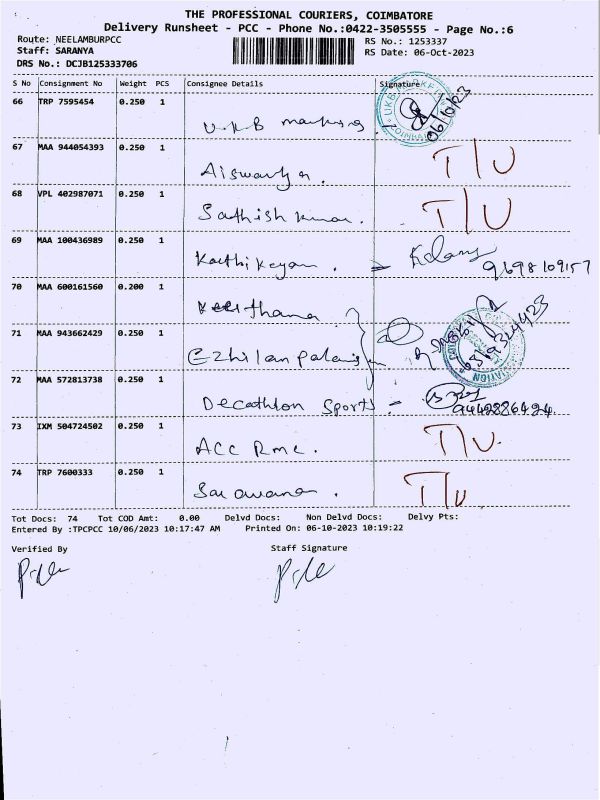 THE PROFESSIONAL COURIERS, COIMBATORE
Delivery Runsheet - PCC - Phone No.:0422-3505555 - Page No.:6
Route: NEELAMBURPCC RS No.: 1253337
Staff: SARANYA RS Date: 06-Oct-2023
DRS No.: DCJB125333706
S No Consignment No Weight PCS Consignee Details Signature
66 TRP 7595454 0.250 1
UKB marking 06/10/23
67 MAA 944054393 0.250 1 T/U
Aiswarya.
68 VPL 402987071 0.250 1 T/U
Sathish kumar.
69 MAA 100436989 0.250 1
Karthikeyan. 9698109157
70 MAA 600161560 0.200 1
Keerthana
71 MAA 943662429 0.250 1
72 MAA 572813738 0.250 1
Decathlon Sports - 9442886424
73 IXM 504724502 0.250 1 T/U.
ACC Rmc.
74 TRP 7600333 0.250 1 T/U
Saravanan.
Tot Docs: 74 Tot COD Amt: 0.00 Delvd Docs: Non Delvd Docs: Delvy Pts:
Entered By :TPCPCC 10/06/2023 10:17:47 AM Printed On: 06-10-2023 10:19:22
Verified By Staff Signature